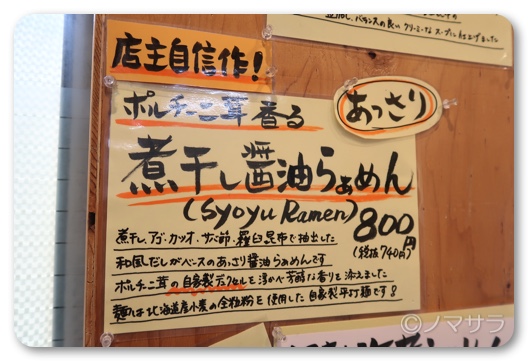 バランスの良いクリーミーなスープに仕上げました
店主自信作!
あっさり
ポルチーニ茸香る
煮干し醤油らぁめん
(Syoyu Ramen)
800円
(税抜740円)
煮干し、アゴ・カツオ・サバ節・羅臼昆布で抽出した
和風だしがベースのあっさり醤油らぁめんです
ポルチーニ茸の自家製デュクセルを浮かべ芳醇な香りを添えました
麺は北海道産小麦の全粒粉を使用した自家製平打麺です!
©ノマサラ